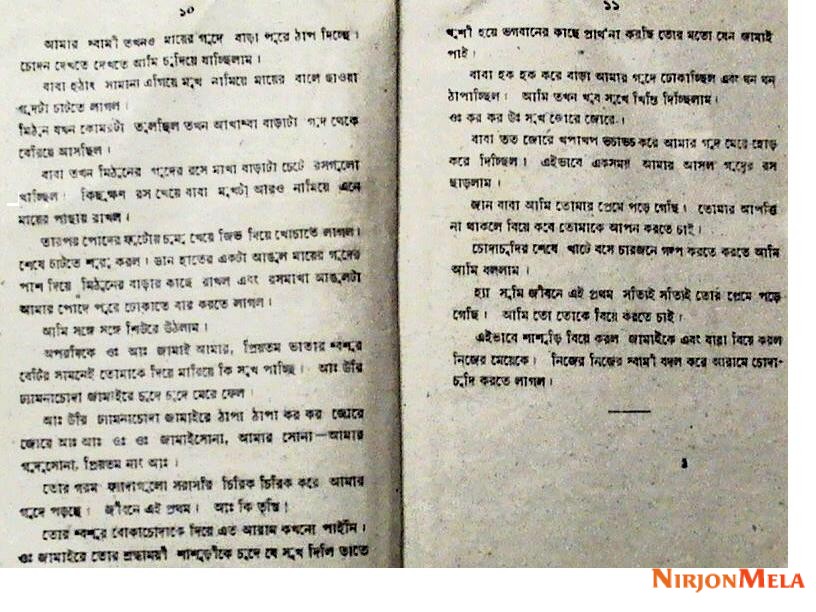 ১০
আমার স্বামী তখনও মায়ের গুদে বাড়া পুরে ঠাপ দিচ্ছে।
চোদন দেখতে দেখতে আমি চুদিয়ে যাচ্ছিলাম।
বাবা হঠাৎ সামান্য এগিয়ে মুখ নামিয়ে মায়ের বালে ছাওয়া
গুদটা চাটতে লাগল।
মিঠুন যখন কোমরটা তুলছিল তখন আখাম্বা বাড়াটা গুদ থেকে
বেরিয়ে আসছিল।
বাবা তখন মিঠুনের গুদের রসে মাখা বাড়াটা চেটে রসগুলো
খাচ্ছিল। কিছুক্ষণ রস খেয়ে বাবা মুখটা আরও নামিয়ে এনে
মায়ের পাছায় রাখল।
তারপর পোদের ফুটোয় চুমু খেয়ে জিভ দিয়ে খোচাতে লাগল।
শেষে চাটতে শুরু করল। ডান হাতের একটা আঙুল মায়ের গুদের
পাশ দিয়ে মিঠুনের বাড়ার কাছে রাখল এবং রসমাখা আঙুলটা
আমার পোদে পুরে ঢোকাতে বার করতে লাগল।
আমি সঙ্গে সঙ্গে শিউরে উঠলাম।
অপরদিকে ওঃ আঃ জামাই আমার, প্রিয়তম ভাতার শ্বশুর
বেটির সামনেই তোমাকে দিয়ে মারিয়ে কি সুখ পাচ্ছি। আঃ উরি
ঢ্যামনাচোদা জামাইরে চুদে চুদে মেরে ফেল।
আঃ উরি ঢ্যামনাচোদা জামাইরে ঠাপা ঠাপা কর কর জোরে
জোরে আঃ আঃ ওঃ ওঃ জামাইসোনা, আমার সোনা—আমার
গুদুসোনা, প্রিয়তম নাং আঃ।
তোর গরম ফ্যাদাগুলো সরাসরি চিরিক চিরিক করে আমার
গুদে পড়ছে। জীবনে এই প্রথম। আঃ কি তৃপ্তি।
তোর শ্বশুর বোকাচোদাকে দিয়ে এত আরাম কখনো পাইনি।
ওঃ জামাইরে তোর শ্রদ্ধাময়ী শাশুড়ীকে চুদে যে সুখ দিলি তাতে
১১
খুশী হয়ে ভগবানের কাছে প্রার্থনা করছি তোর মতো যেন জামাই
পাই।
বাবা হক হক করে বাড়া আমার গুদে ঢোকাচ্ছিল এবং ঘন ঘন
ঠাপাচ্ছিল। আমি তখন খুব সুখে খিস্তি দিচ্ছিলাম।
ওঃ কর কর উঃ সুখ জোরে জোরে।
বাবা তত জোরে খপাখপ ভচাভচ করে আমার গুদ মেরে হোড়
করে দিচ্ছিল। এইভাবে একসময় আমার আসল গুদের রস
ছাড়লাম।
জান বাবা আমি তোমার প্রেমে পড়ে গেছি। তোমার আপত্তি
না থাকলে বিয়ে করে তোমাকে আপন করতে চাই।
চোদাচুদির শেষে খাটে বসে চারজনে গল্প করতে করতে আমি
আমি বললাম।
হ্যা সুমি জীবনে এই প্রথম সত্যিই সত্যিই তোর প্রেমে পড়ে
গেছি। আমি তো তোকে বিয়ে করতে চাই।
এইভাবে শাশুড়ি বিয়ে করল জামাইকে এবং বাবা বিয়ে করল
নিজের মেয়েকে। নিজের নিজের স্বামী বদল করে আরামে চোদা-
চুদি করতে লাগল।
NIRJONMELA